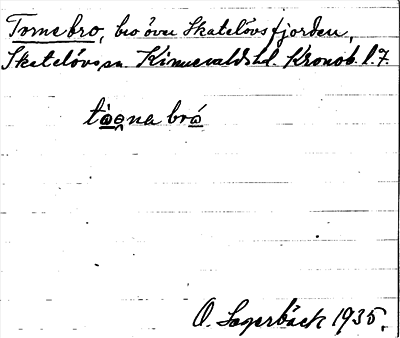 Torne bro, bro över Skatelövsfjorden,
Skatelövs sn. Kinnevalds hd. Kronob. l. 7
bro
O. Lagerbäck 1935.